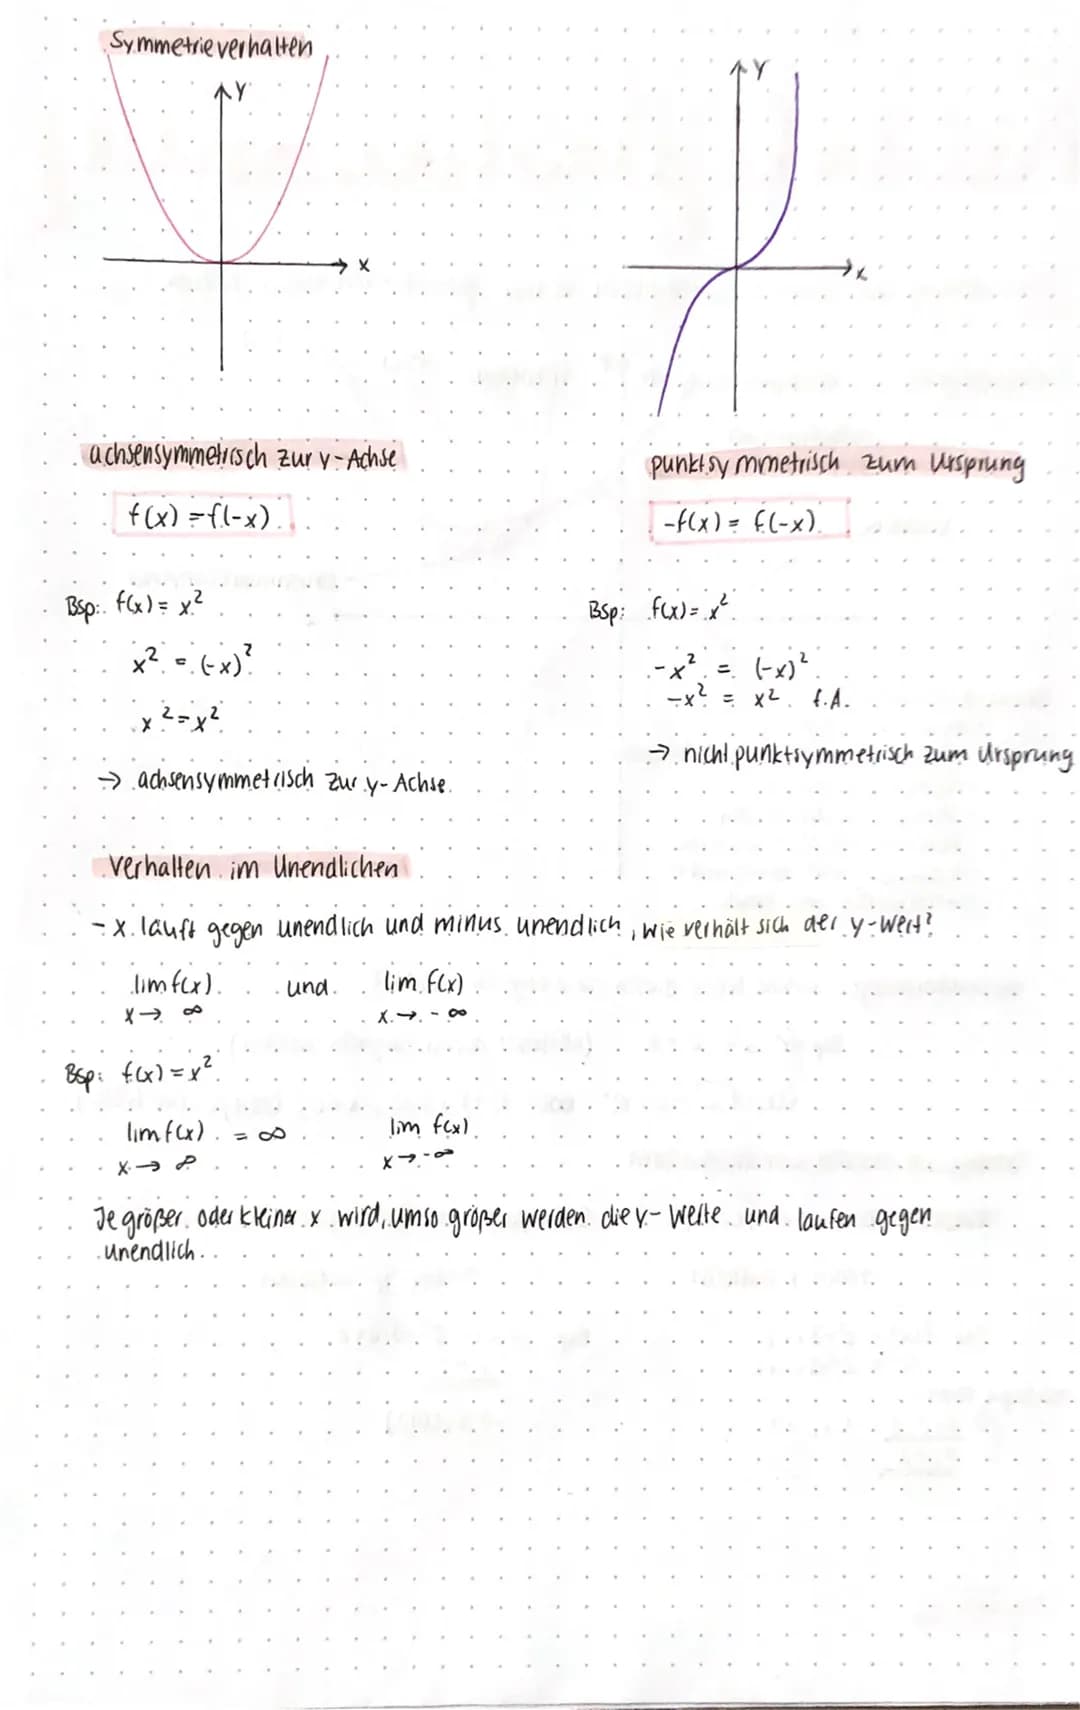 Symmetrieverhalten
Y
x
Y
x
achsensymmetrisch zur y-Achse
f(x) = f(-x)
Bsp: f(x) = x²
x² = (-x)²
x² = x²
→ achsensymmetrisch zur y-Achse
punktsymmetrisch zum Ursprung
-f(x) = f(-x)
Bsp: f(x) = x²
-x² = (-x)²
-x² = x² f.A.
→ nicht punktsymmetrisch zum Ursprung
Verhalten im Unendlichen
- x läuft gegen unendlich und minus unendlich, wie verhält sich der y-Wert?
lim f(x) und lim f(x)
x → ∞ x → -∞
Bsp: f(x) = x²
lim f(x) = ∞ lim f(x)
x → ∞ x → -∞
Je größer oder kleiner x wird, umso größer werden die y-Werte und laufen gegen
unendlich.